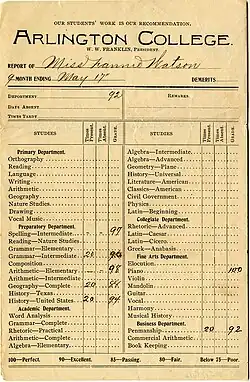 OUR STUDENTS' WORK IS OUR RECOMMENDATION.
ARLINGTON COLLEGE.
W. W. FRANKLIN, PRESIDENT.
REPORT OF Miss Fannie Watson
9 MONTH ENDING May 17 DEMERITS
DEPORTMENT 92 REMARKS.
DAYS ABSENT
TIMES TARDY
STUDIES Times Present. Times Absent. GRADE. STUDIES Times Present. Times Absent. GRADE.
Primary Department.
Orthography
Reading
Language
Writing
Arithmetic
Geography
Nature Studies
Drawing
Vocal Music
Preparatory Department.
Spelling—Intermediate 97
Reading—Nature Studies
Grammar—Elementary
Grammar—Intermediate 20
Composition
Arithmetic—Elementary 98
Arithmetic—Intermediate
Geography—Complete 20 84
History—Texas
History—United States 20 94
Academic Department.
Word Analysis
Grammar—Complete
Rhetoric—Practical
Arithmetic—Complete
Algebra—Elementary
Algebra—Intermediate
Algebra—Advanced
Geometry—Plane
History—Universal
Literature—American
Classics—American
Civil Government
Physics
Latin—Beginning
Collegiate Department.
Rhetoric—Advanced
Latin—Caesar
Latin—Cicero
Greek—Anabasis
Fine Arts Department.
Elocution
Piano 100
Violin
Mandolin
Guitar
Vocal
Harmony
Musical History
Business Department.
Penmanship 20 92
Commercial Arithmetic
Book Keeping
100—Perfect. 90—Excellent. 85—Passing. 80—Fair. Below 75—Poor.